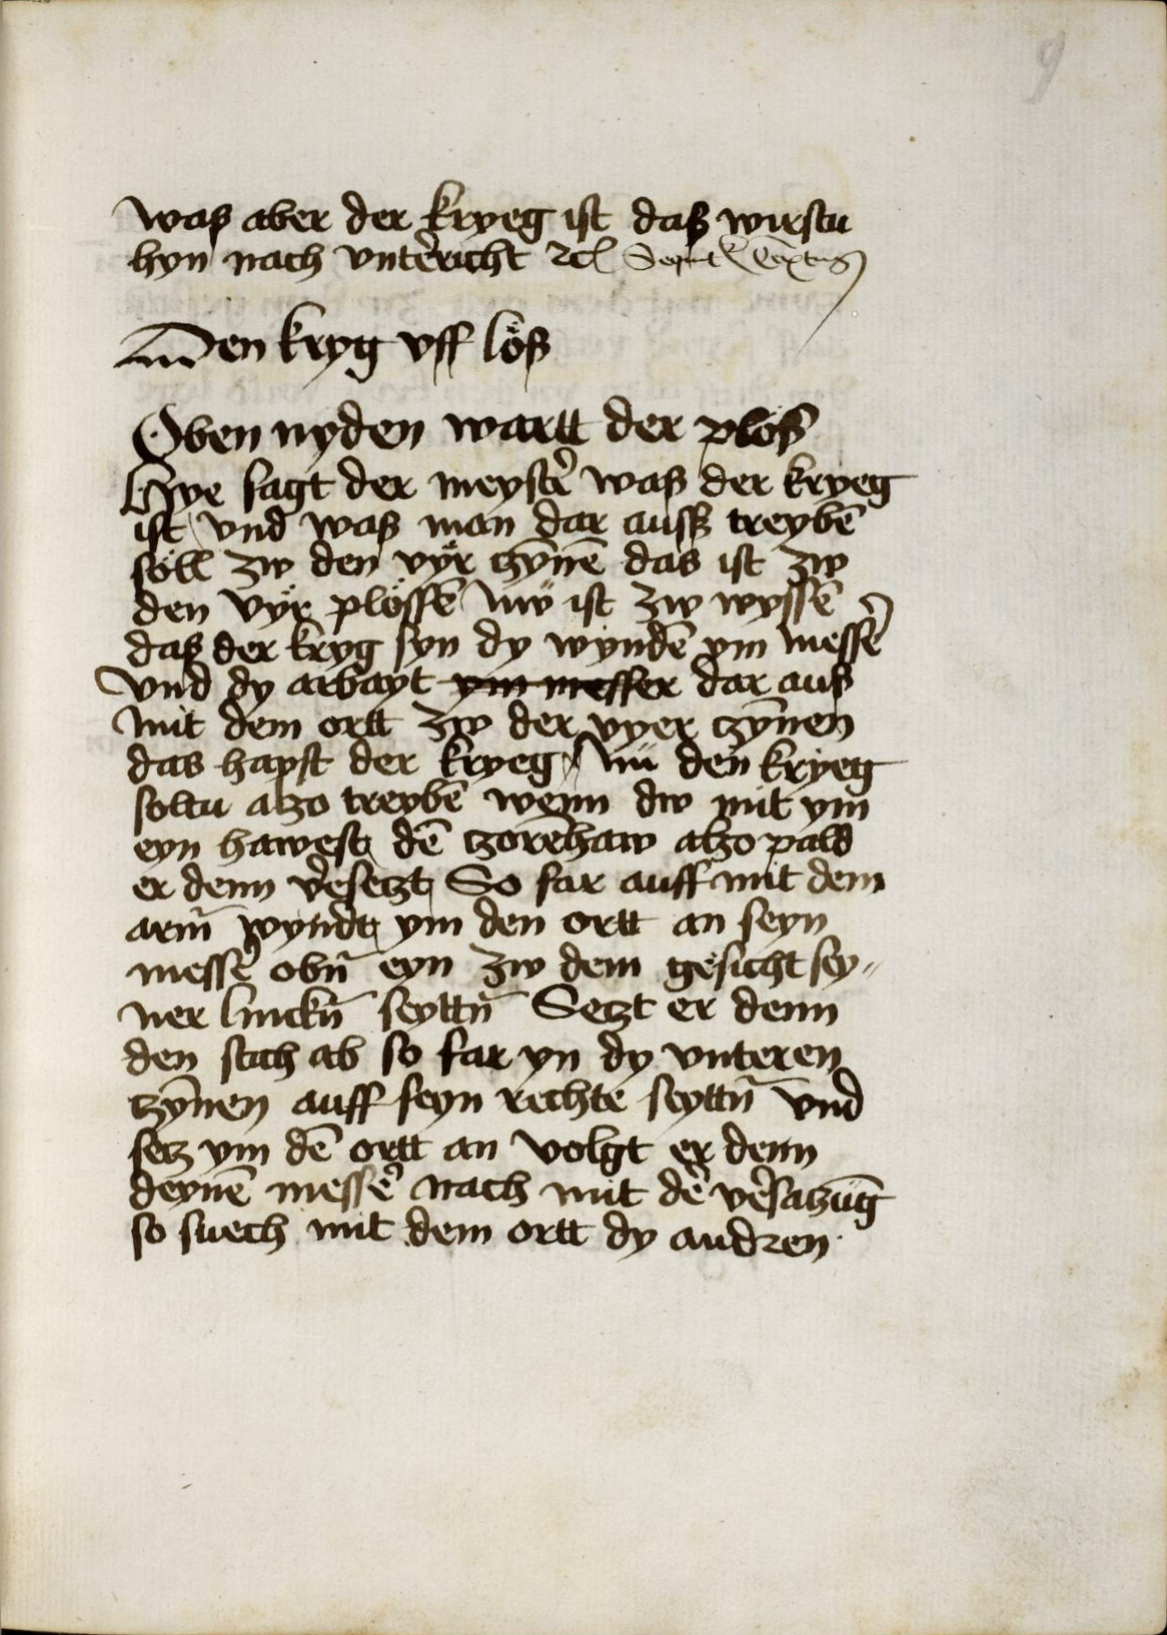 9
was aber der kryeg ist daß wirstu
hyn nach vnterricht ꝛcͣ Seqͥtͬ Textus
Den kryg vff löß
Oben nyden wartt der plöß
Hye sagt der meyster̕ waß der kryeg
ist vnd waß man dar auss treybē
söll zw den vÿr czÿnē das ist zw
den vÿr plössē Nw̋ ist zw wyssē
daß der kryg syn dy wyndē ym messe᷑
Vnd dy arbayt ym messer dar auß
mit dem ortt zw der vyer czÿnen
das hayst der kryeg / Nu̎ den kryeg
soltu alzo treybē wenn dw mit ym
eyn hawest dē zorēhaw alzo pald
er denn v᷑seczt So far auff mit dem
arm̄ wyndt ym den ortt an seyn
messe᷑ obn̄ eyn zw dem gesicht sey„
ner linckn̄ seyttn̄ Seczt er denn
den stich ab so far yn dy vnteren
czÿnen auff seyn rechte seyttn̄ vnd
secz ym dē ortt an volgt er denn
deynē messe᷑ nach mit de᷑ v᷑saczūg
so suech mit dem ortt dy andren